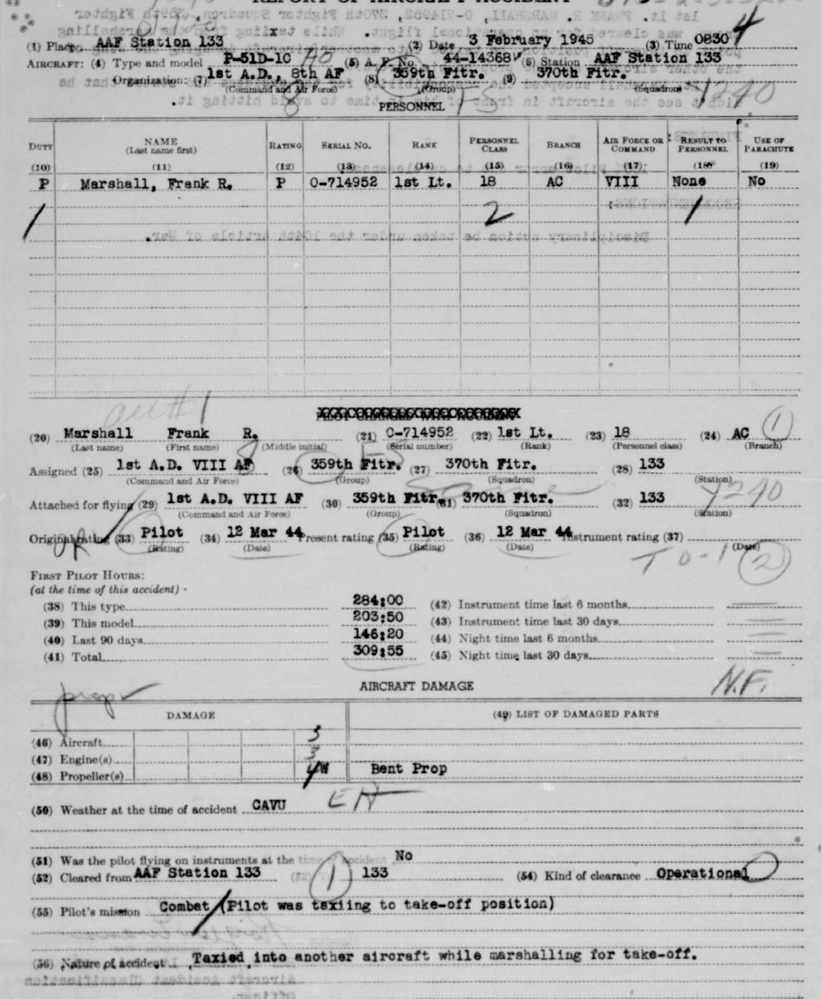 REPORT OF AIRCRAFT ACCIDENT
(1) Place AAF Station 133 (2) Date 3 February 1945 (3) Time 0830 4
AIRCRAFT: (4) Type and model P-51D-10 (5) A. F. No. 44-14368 (6) Station AAF Station 133
Organization: (7) 1st A.D., 8th AF (8) 359th Fitr. (9) 370th Fitr.
(Command and Air Force) (Group) (Squadron)
PERSONNEL
DUTY NAME (Last name first) RATING SERIAL NO. RANK PERSONNEL CLASS BRANCH AIR FORCE OR COMMAND RESULT TO PERSONNEL USE OF PARACHUTE
(10) (11) (12) (13) (14) (15) (16) (17) (18) (19)
P Marshall, Frank R. P O-714952 1st Lt. 18 AC VIII None No
1 2 1
(20) Marshall Frank R. (21) O-714952 (22) 1st Lt. (23) 18 (24) AC 1
(Last name) (First name) (Middle initial) (Serial number) (Rank) (Personnel class) (Branch)
Assigned (25) 1st A.D. VIII AF (26) 359th Fitr. (27) 370th Fitr. (28) 133
(Command and Air Force) (Group) (Squadron) (Station)
Attached for flying (29) 1st A.D. VIII AF (30) 359th Fitr. (31) 370th Fitr. (32) 133
(Command and Air Force) (Group) (Squadron) (Station)
Original rating (33) Pilot (34) 12 Mar 44 Present rating (35) Pilot (36) 12 Mar 44 Instrument rating (37)
(Rating) (Date) (Rating) (Date) (Date)
T O-1 2
FIRST PILOT HOURS:
(at the time of this accident)
(38) This type 284:00 (42) Instrument time last 6 months
(39) This model 203:50 (43) Instrument time last 30 days
(40) Last 90 days 146:20 (44) Night time last 6 months
(41) Total 309:55 (45) Night time last 30 days
AIRCRAFT DAMAGE N.F.
prop
DAMAGE (49) LIST OF DAMAGED PARTS
(46) Aircraft 3
(47) Engine(s) 3
(48) Propeller(s) Bent Prop
(50) Weather at the time of accident CAVU
(51) Was the pilot flying on instruments at the time of accident No
(52) Cleared from AAF Station 133 (53) 1 133 (54) Kind of clearance Operational
(55) Pilot's mission Combat (Pilot was taxiing to take-off position)
(56) Nature of accident Taxied into another aircraft while marshalling for take-off.